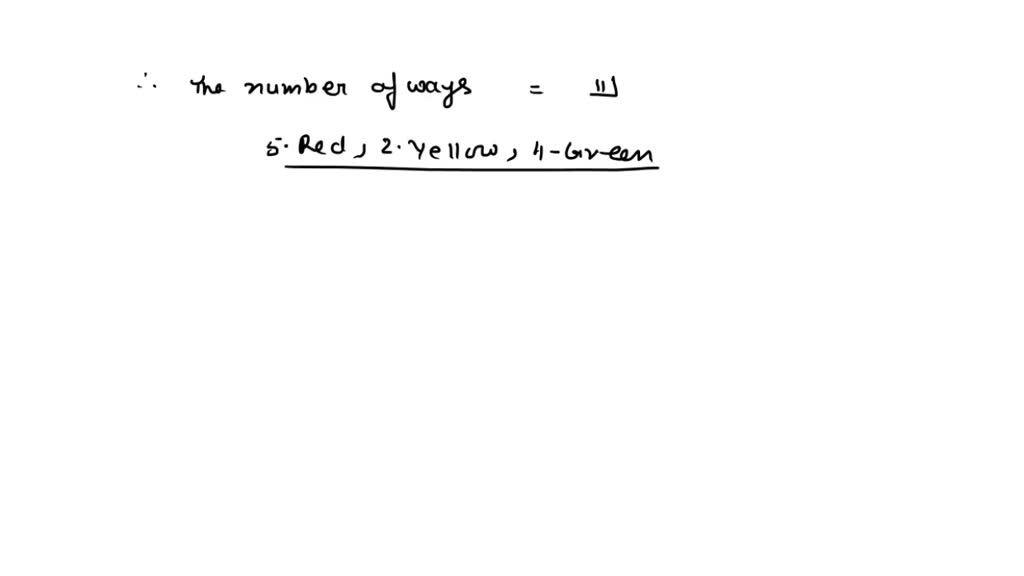 ∴ The number of ways = 11!
5. Red, 2. Yellow, 4-Green